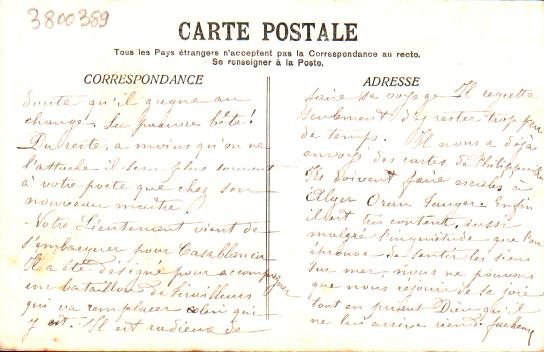 3800389
CARTE POSTALE
Tous les Pays étrangers n'acceptent pas la Correspondance au recto.
Se renseigner à la Poste.
CORRESPONDANCE
doute qu'il gagne au
change. La pauvre bête!
Du reste, a moins qu'on ne
l'attache il sera plus souvent
à votre porte que chez son
nouveau maître.
Notre Lieutenant vient de
s'embarquer pour Casablanca
Il a été désigné pour accompagner
un bataillon de tirailleurs
qui va remplacer celui qui
y est. Il est radieux de
ADRESSE
faire ce voyage Il regrette
seulement d'y rester trop peu
de temps. Il nous a déjà
envoyé des cartes de Philippeville
Ils doivent faire escales à
Alger Oran Tanger. Enfin
il est très content, aussi
malgré l'inquiétude que l'on
éprouve de sentir les siens
sur mer, nous ne pouvons
que nous réjouir de sa joie
tout en priant Dieu qu'il
ne lui arrive rien.